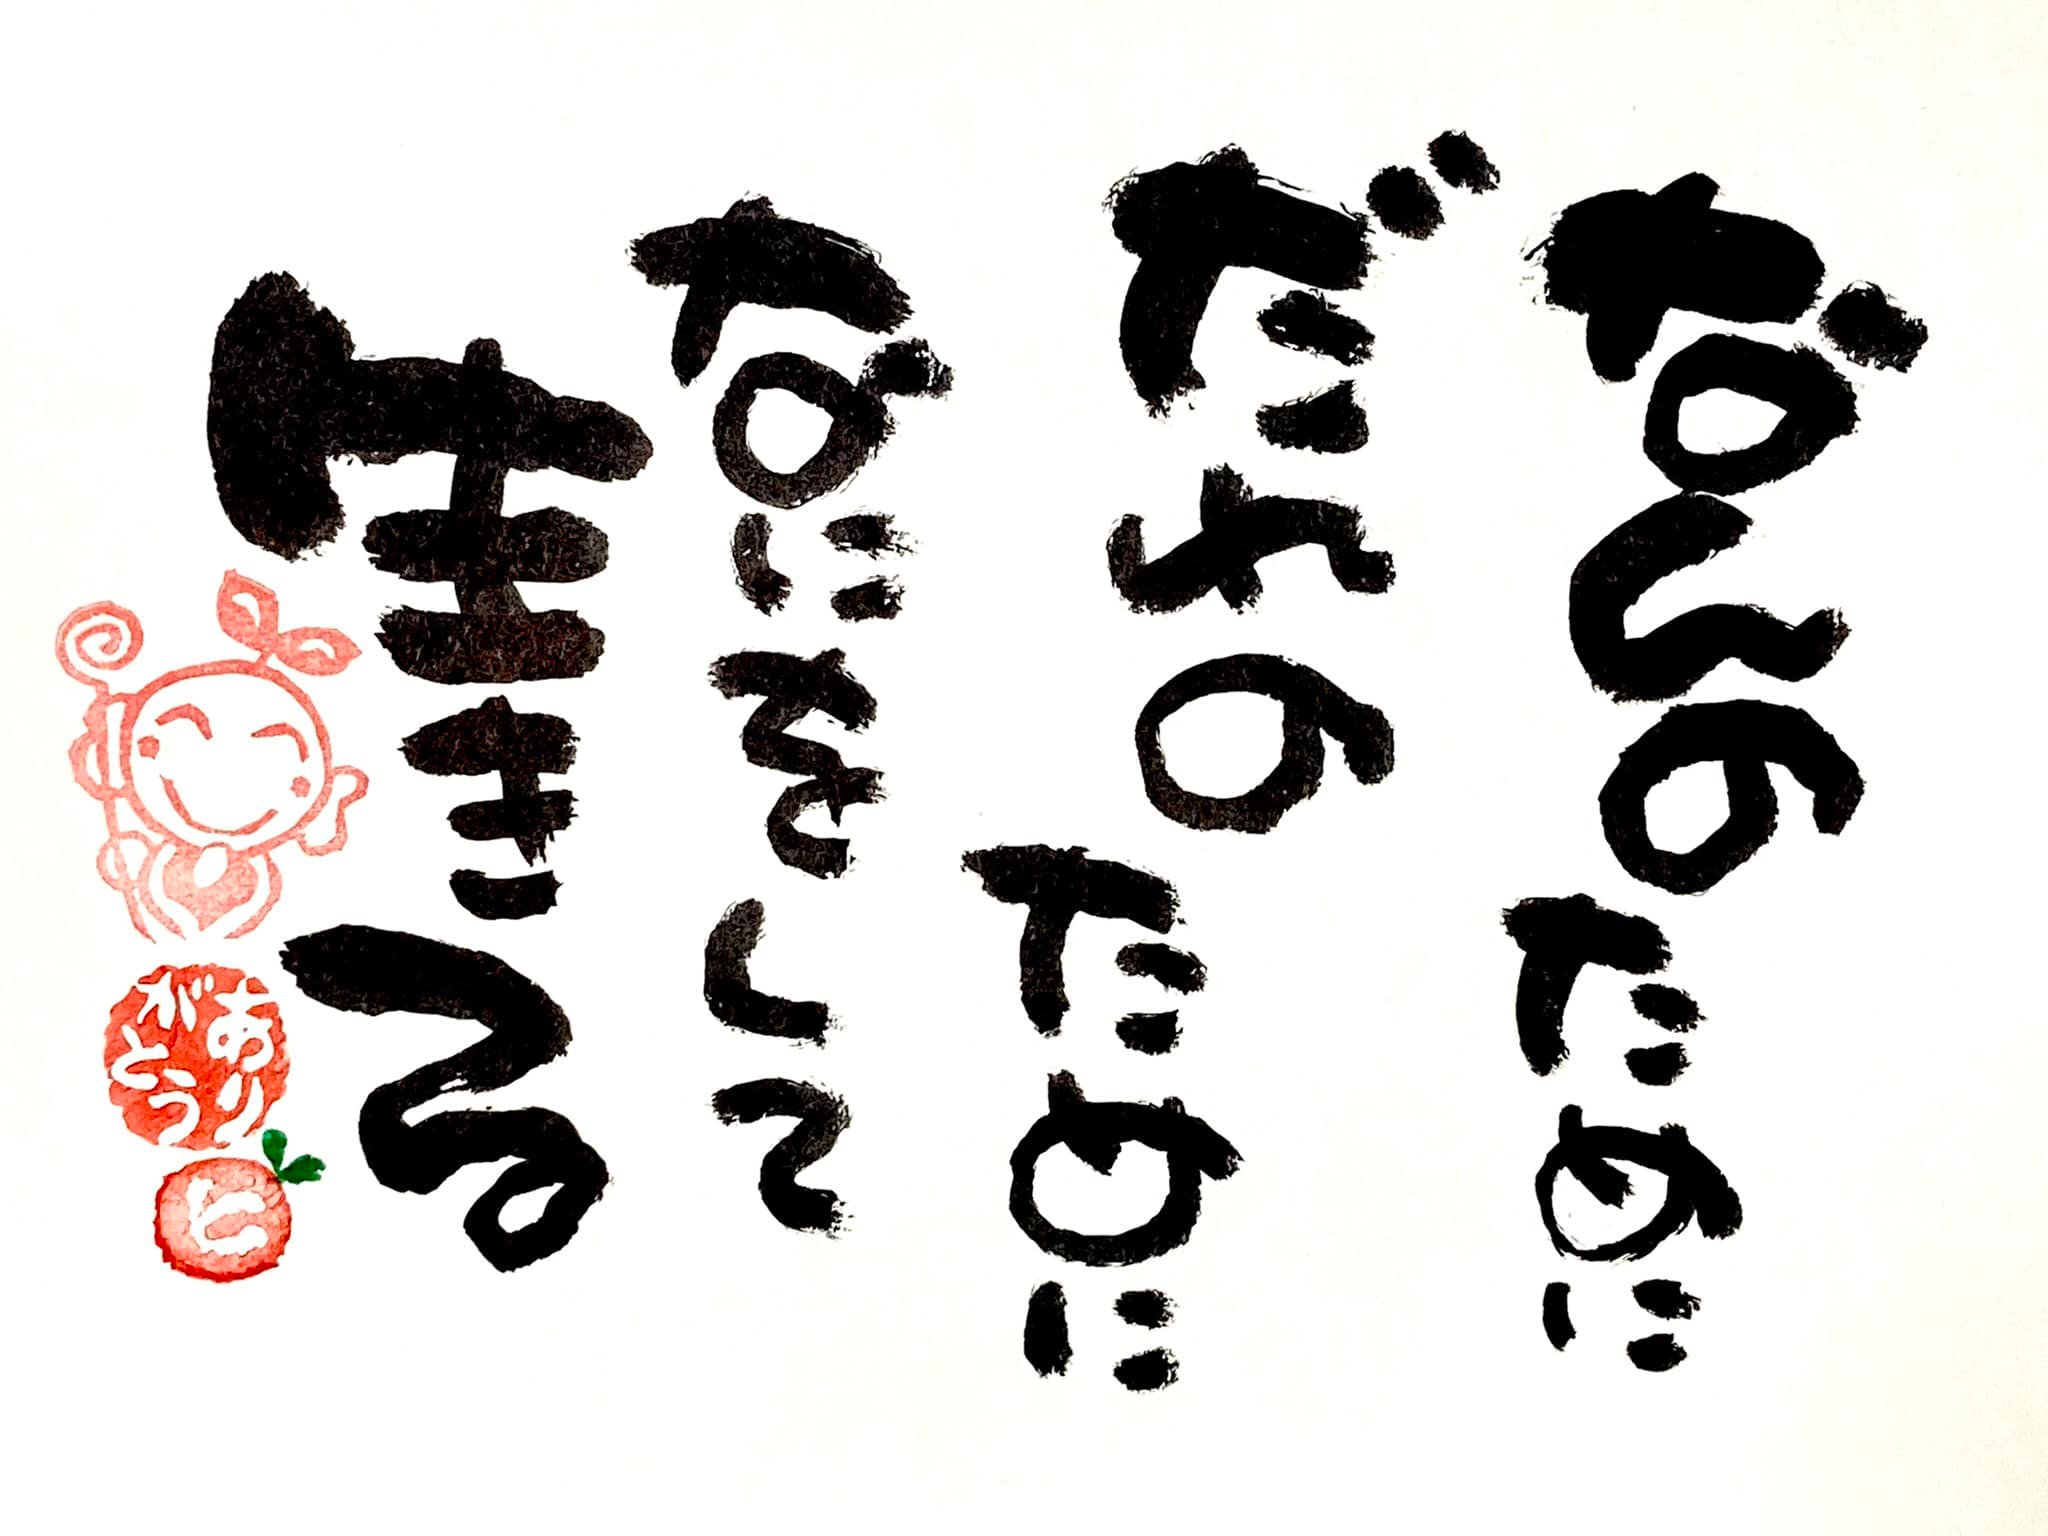 なんのために
だれのために
なにをして
生きる
ありがとう